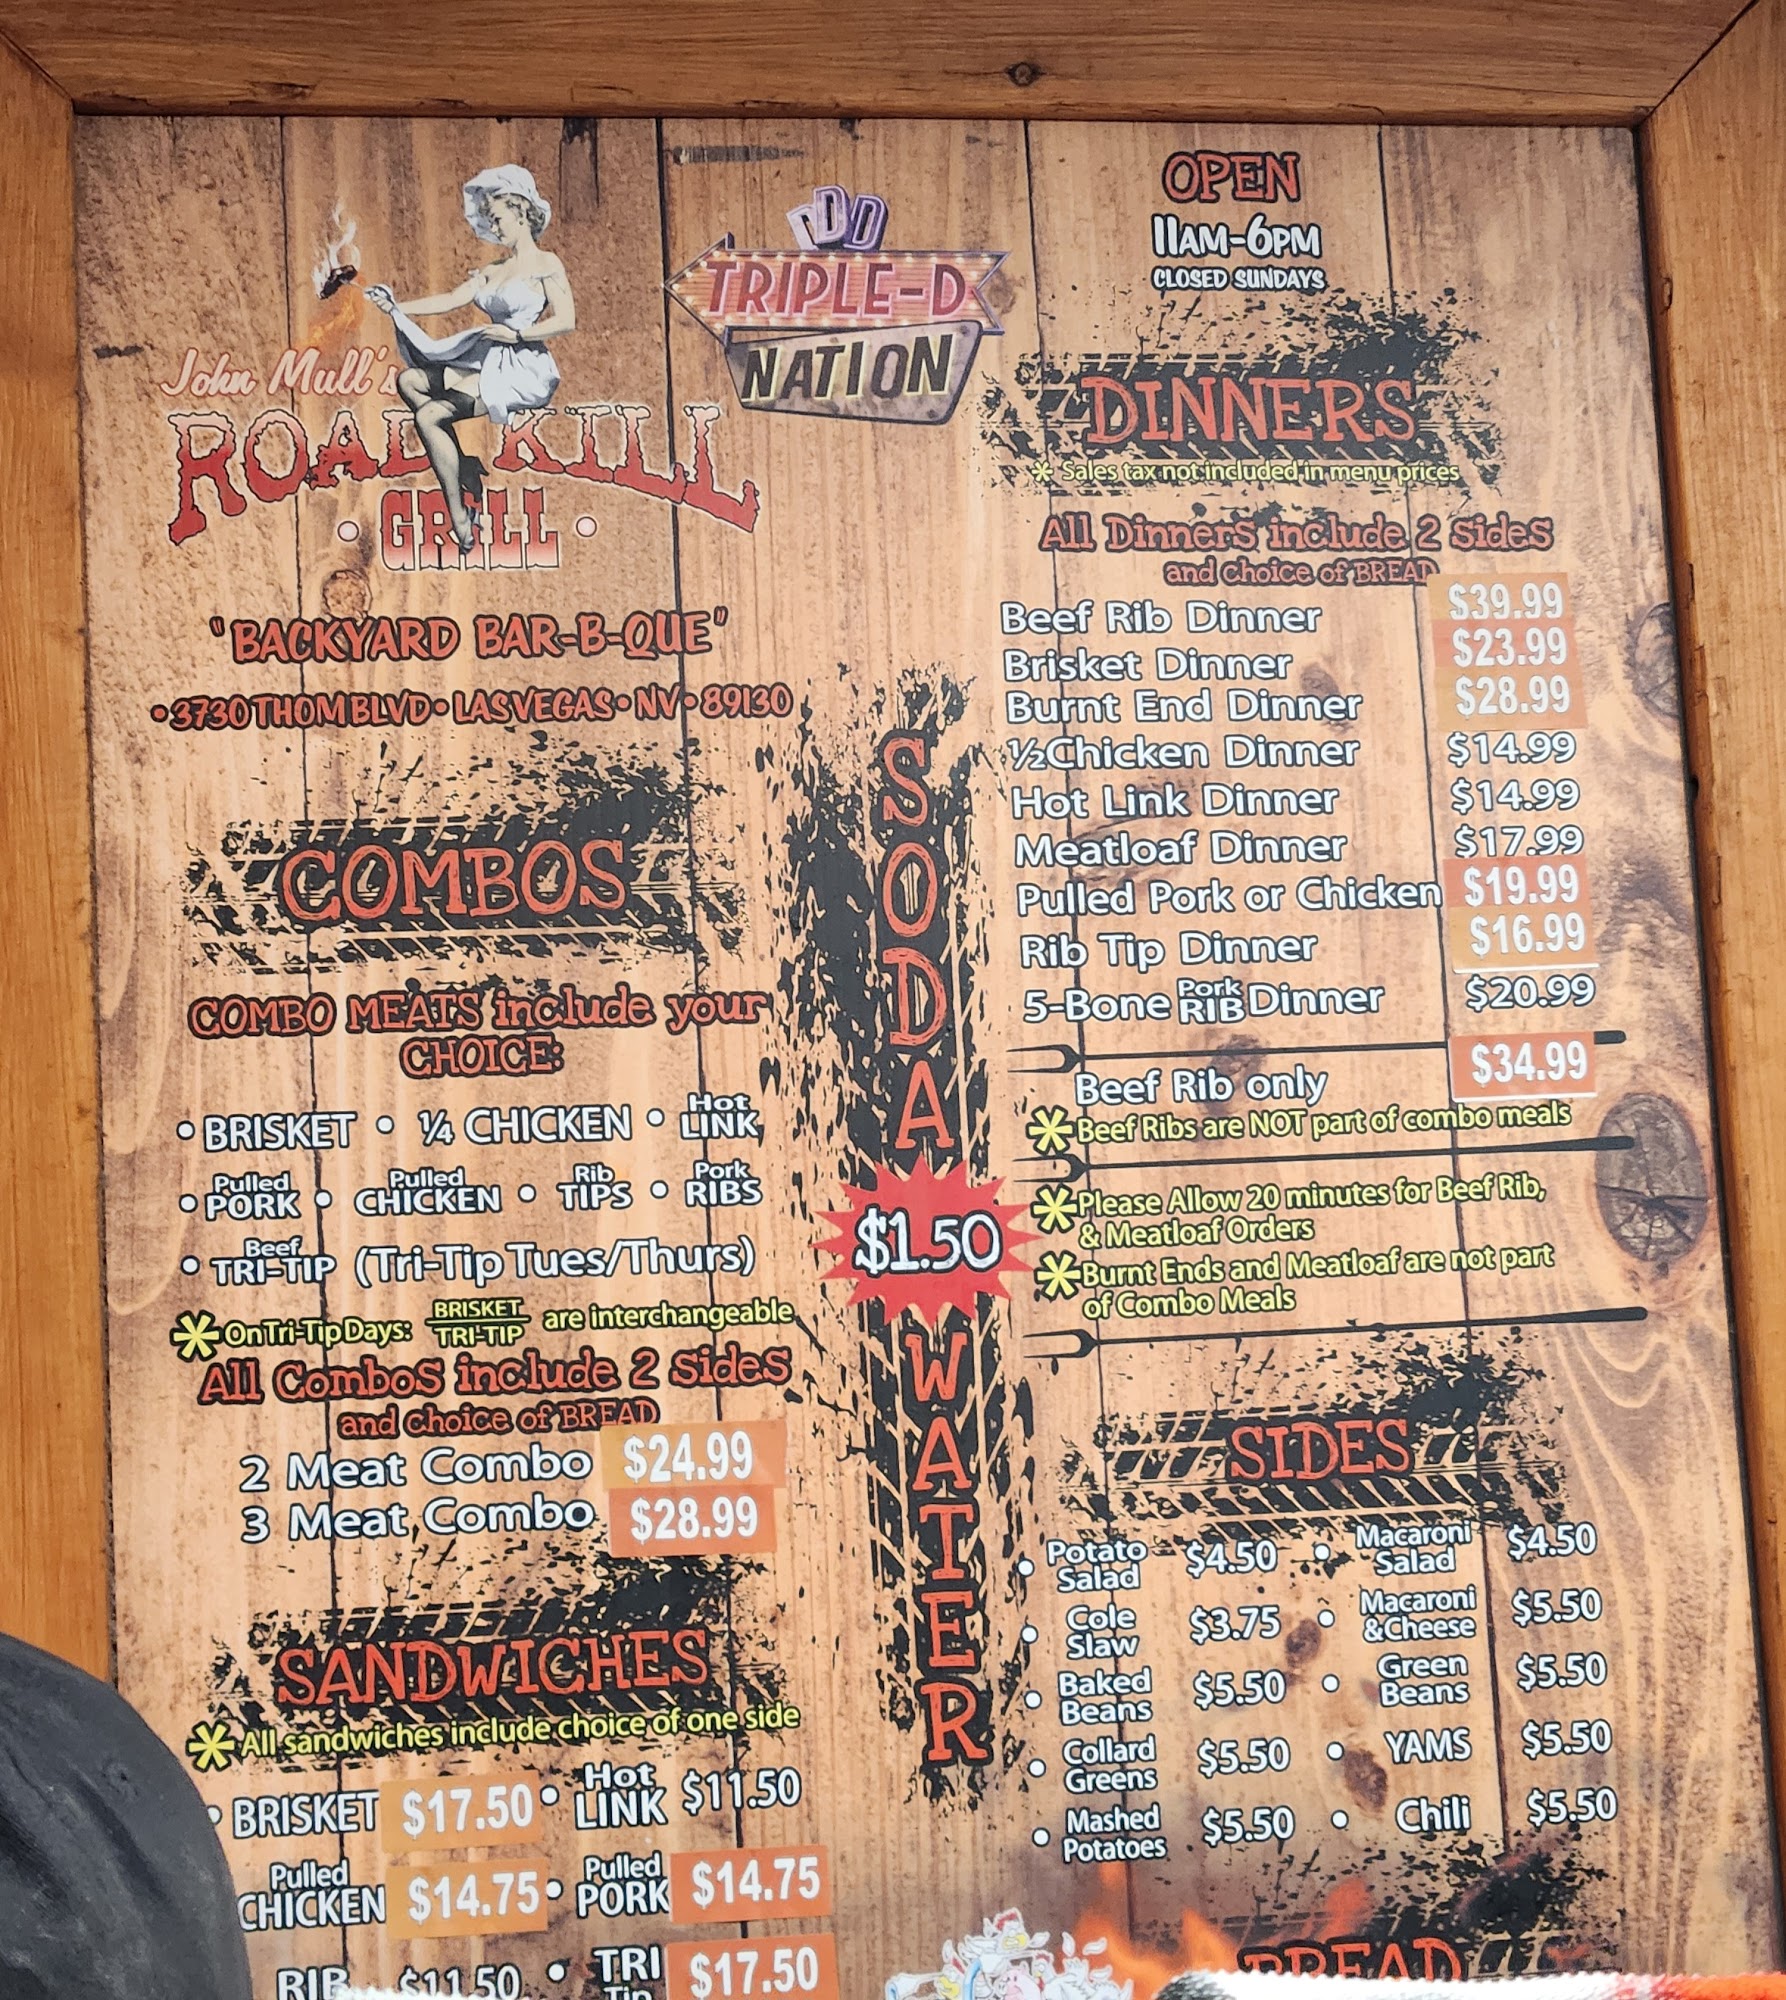 John Mull's
ROAD KILL
GRILL
"BACKYARD BAR-B-QUE"
•3730 THOM BLVD•LAS VEGAS•NV•89130
DDD
TRIPLE-D
NATION
OPEN
11AM-6PM
CLOSED SUNDAYS
COMBOS
COMBO MEATS include your
CHOICE:
• BRISKET • ¼ CHICKEN • Hot LINK
• Pulled PORK • Pulled CHICKEN • Rib TIPS • Pork RIBS
• Beef TRI-TIP (Tri-Tip Tues/Thurs)
* On Tri-Tip Days: BRISKET/TRI-TIP are interchangeable
All Combos include 2 sides
and choice of BREAD
2 Meat Combo $24.99
3 Meat Combo $28.99
SANDWICHES
* All sandwiches include choice of one side
• BRISKET $17.50 • Hot LINK $11.50
Pulled CHICKEN $14.75 • Pulled PORK $14.75
RIB $11.50 • TRI Tip $17.50
SODA
$1.50
WATER
DINNERS
* Sales tax not included in menu prices
All Dinners include 2 sides
and choice of BREAD
Beef Rib Dinner $39.99
Brisket Dinner $23.99
Burnt End Dinner $28.99
½ Chicken Dinner $14.99
Hot Link Dinner $14.99
Meatloaf Dinner $17.99
Pulled Pork or Chicken $19.99
Rib Tip Dinner $16.99
5-Bone Pork RIB Dinner $20.99
Beef Rib only $34.99
* Beef Ribs are NOT part of combo meals
* Please Allow 20 minutes for Beef Rib,
& Meatloaf Orders
* Burnt Ends and Meatloaf are not part
of Combo Meals
SIDES
• Potato Salad $4.50 • Macaroni Salad $4.50
• Cole Slaw $3.75 • Macaroni &Cheese $5.50
• Baked Beans $5.50 • Green Beans $5.50
• Collard Greens $5.50 • YAMS $5.50
• Mashed Potatoes $5.50 • Chili $5.50
BREAD